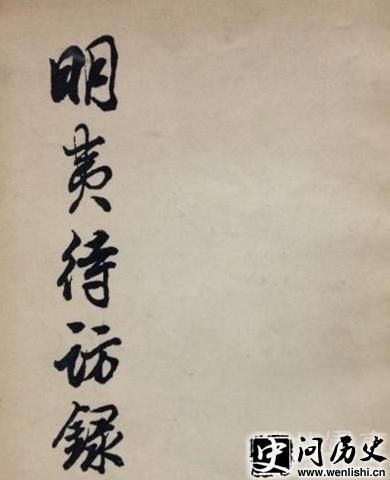 明夷待访録
史问历史
www.wenlishi.cn